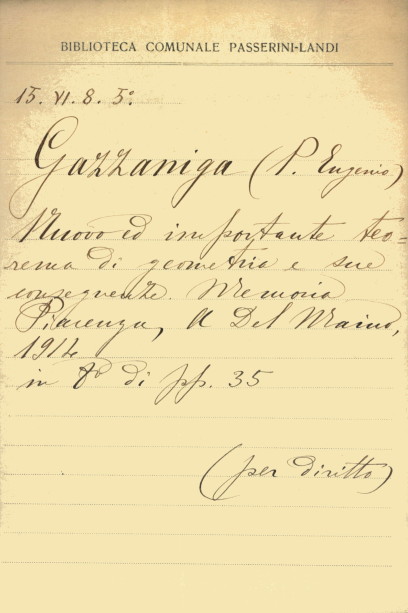 BIBLIOTECA COMUNALE PASSERINI-LANDI
15. VI. 8. 5º
Gazzaniga (P. Eugenio)
Nuovo ed importante teo=
rema di geometria e sue
conseguenze. Memoria
Piacenza, A Del Maino,
1914
in 8º di pp. 35
(per diritto)